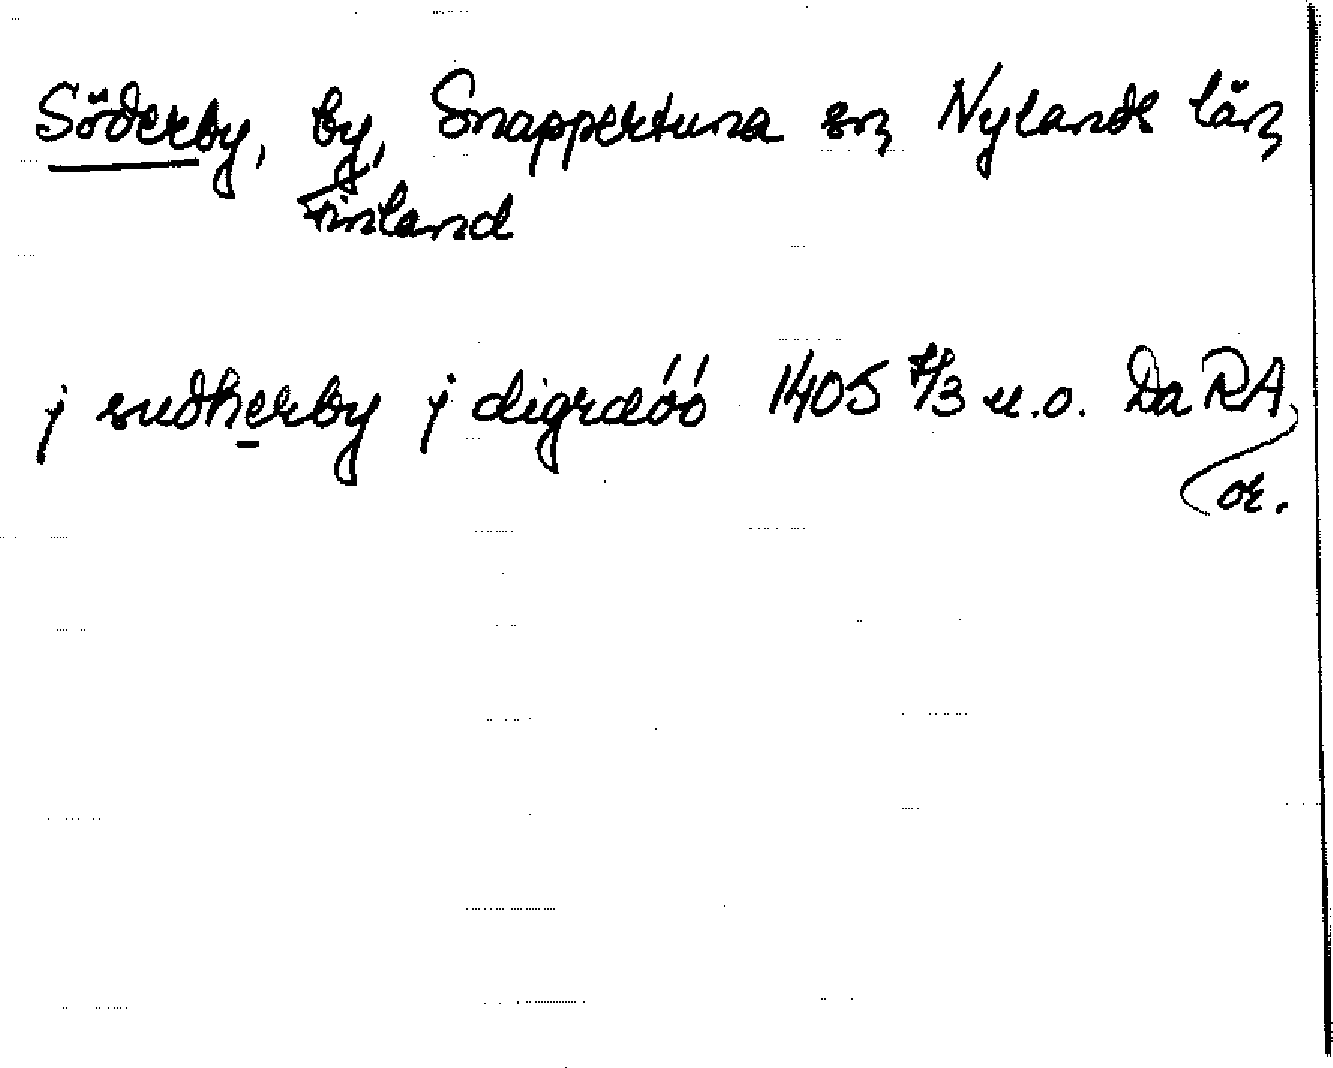 Söderby, by, Snappertuna sn, Nylands län,
Finland
j sudherby j digrdóó 1405 7/3 u.o. Da RA,
or.